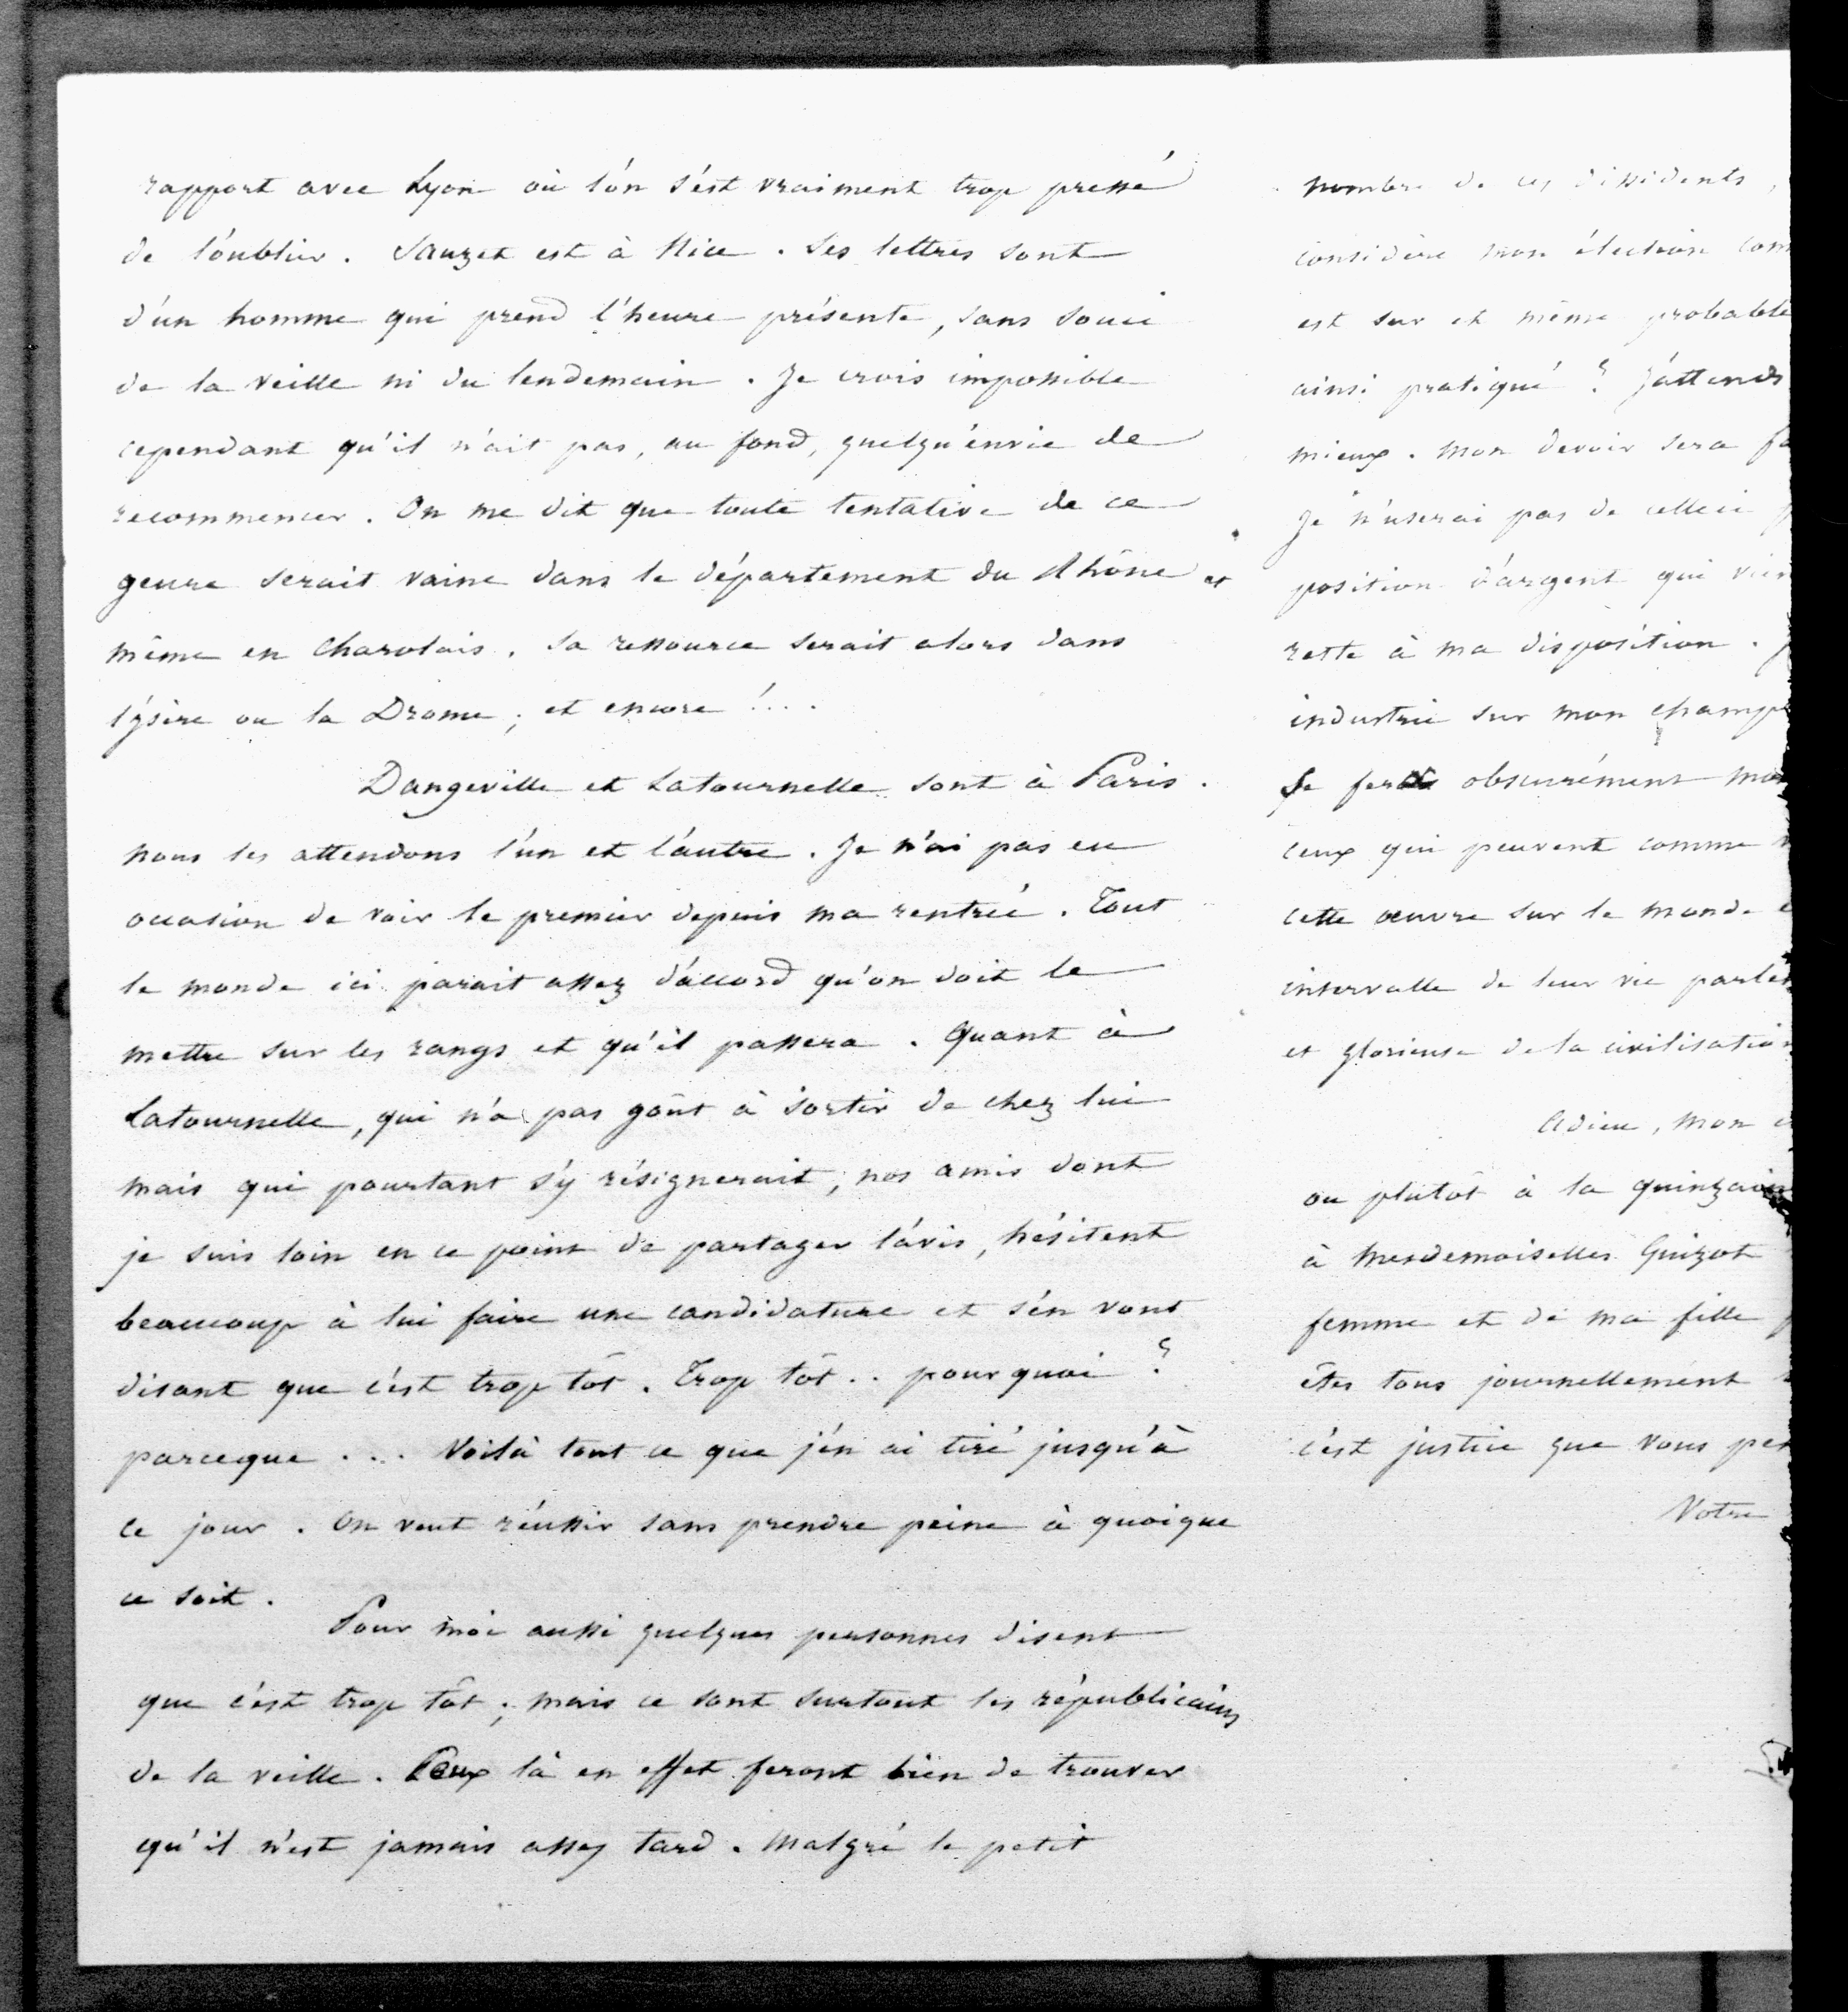 rapport avec Lyon où l'on s'est vraiment trop pressé
de l'oublier. Sauzet est à Nice. Ses lettres sont
d'un homme qui prend l'heure présente, sans souci
de la veille ni du lendemain. Je crois impossible
cependant qu'il n'ait pas, au fond, quelqu'envie de
recommencer. On me dit que toute tentative de ce
genre serait vaine dans le département du Rhône et
même en Charolais. Sa ressource serait alors dans
l'ysère ou la Drome; et encore!...
Dangeville et Latournelle sont à Paris.
nous les attendons l'un et l'autre. Je n'ai pas eu
occasion de voir le premier depuis ma rentrée. Tout
le monde ici parait assez d'accord qu'on doit le
mettre sur les rangs et qu'il passera. Quant à
Latournelle, qui n'a pas goût à sortir de chez lui
mais qui pourtant s'y résignerait, nos amis dont
je suis loin en ce point de partager l'avis, hésitent
beaucoup à lui faire une candidature et s'en vont
disant que c'est trop tôt. Trop tôt.. pourquoi?
parceque ... Voilà tout ce que j'en ai tiré jusqu'à
ce jour. On veut réussir sans prendre peine à quoique
ce soit.
Pour moi aussi quelques personnes disent
que c'est trop tôt; mais ce sont surtout les républicains
de la veille. Ceux là en effet feront bien de trouver
qu'il n'est jamais assez tard. Malgré le petit
nombre de ces dissidents,
considère mon élection com
est sur et même probable
ainsi pratiqué? J'attends
mieux. Mon devoir sera
Je n'userai pas de celle ci
position d'argent qui
reste à ma disposition.
industrie sur mon champ
obscurément
ceux qui peuvent comme
cette œuvre sur le monde
intervalle de leur vie
et glorieuse de la civilisation
Adieu, mon
ou plutôt à la quinzain
à Mesdemoiselles Guizot
femme et de ma fille
êtes tous journellement
c'est justice que vous
Votre